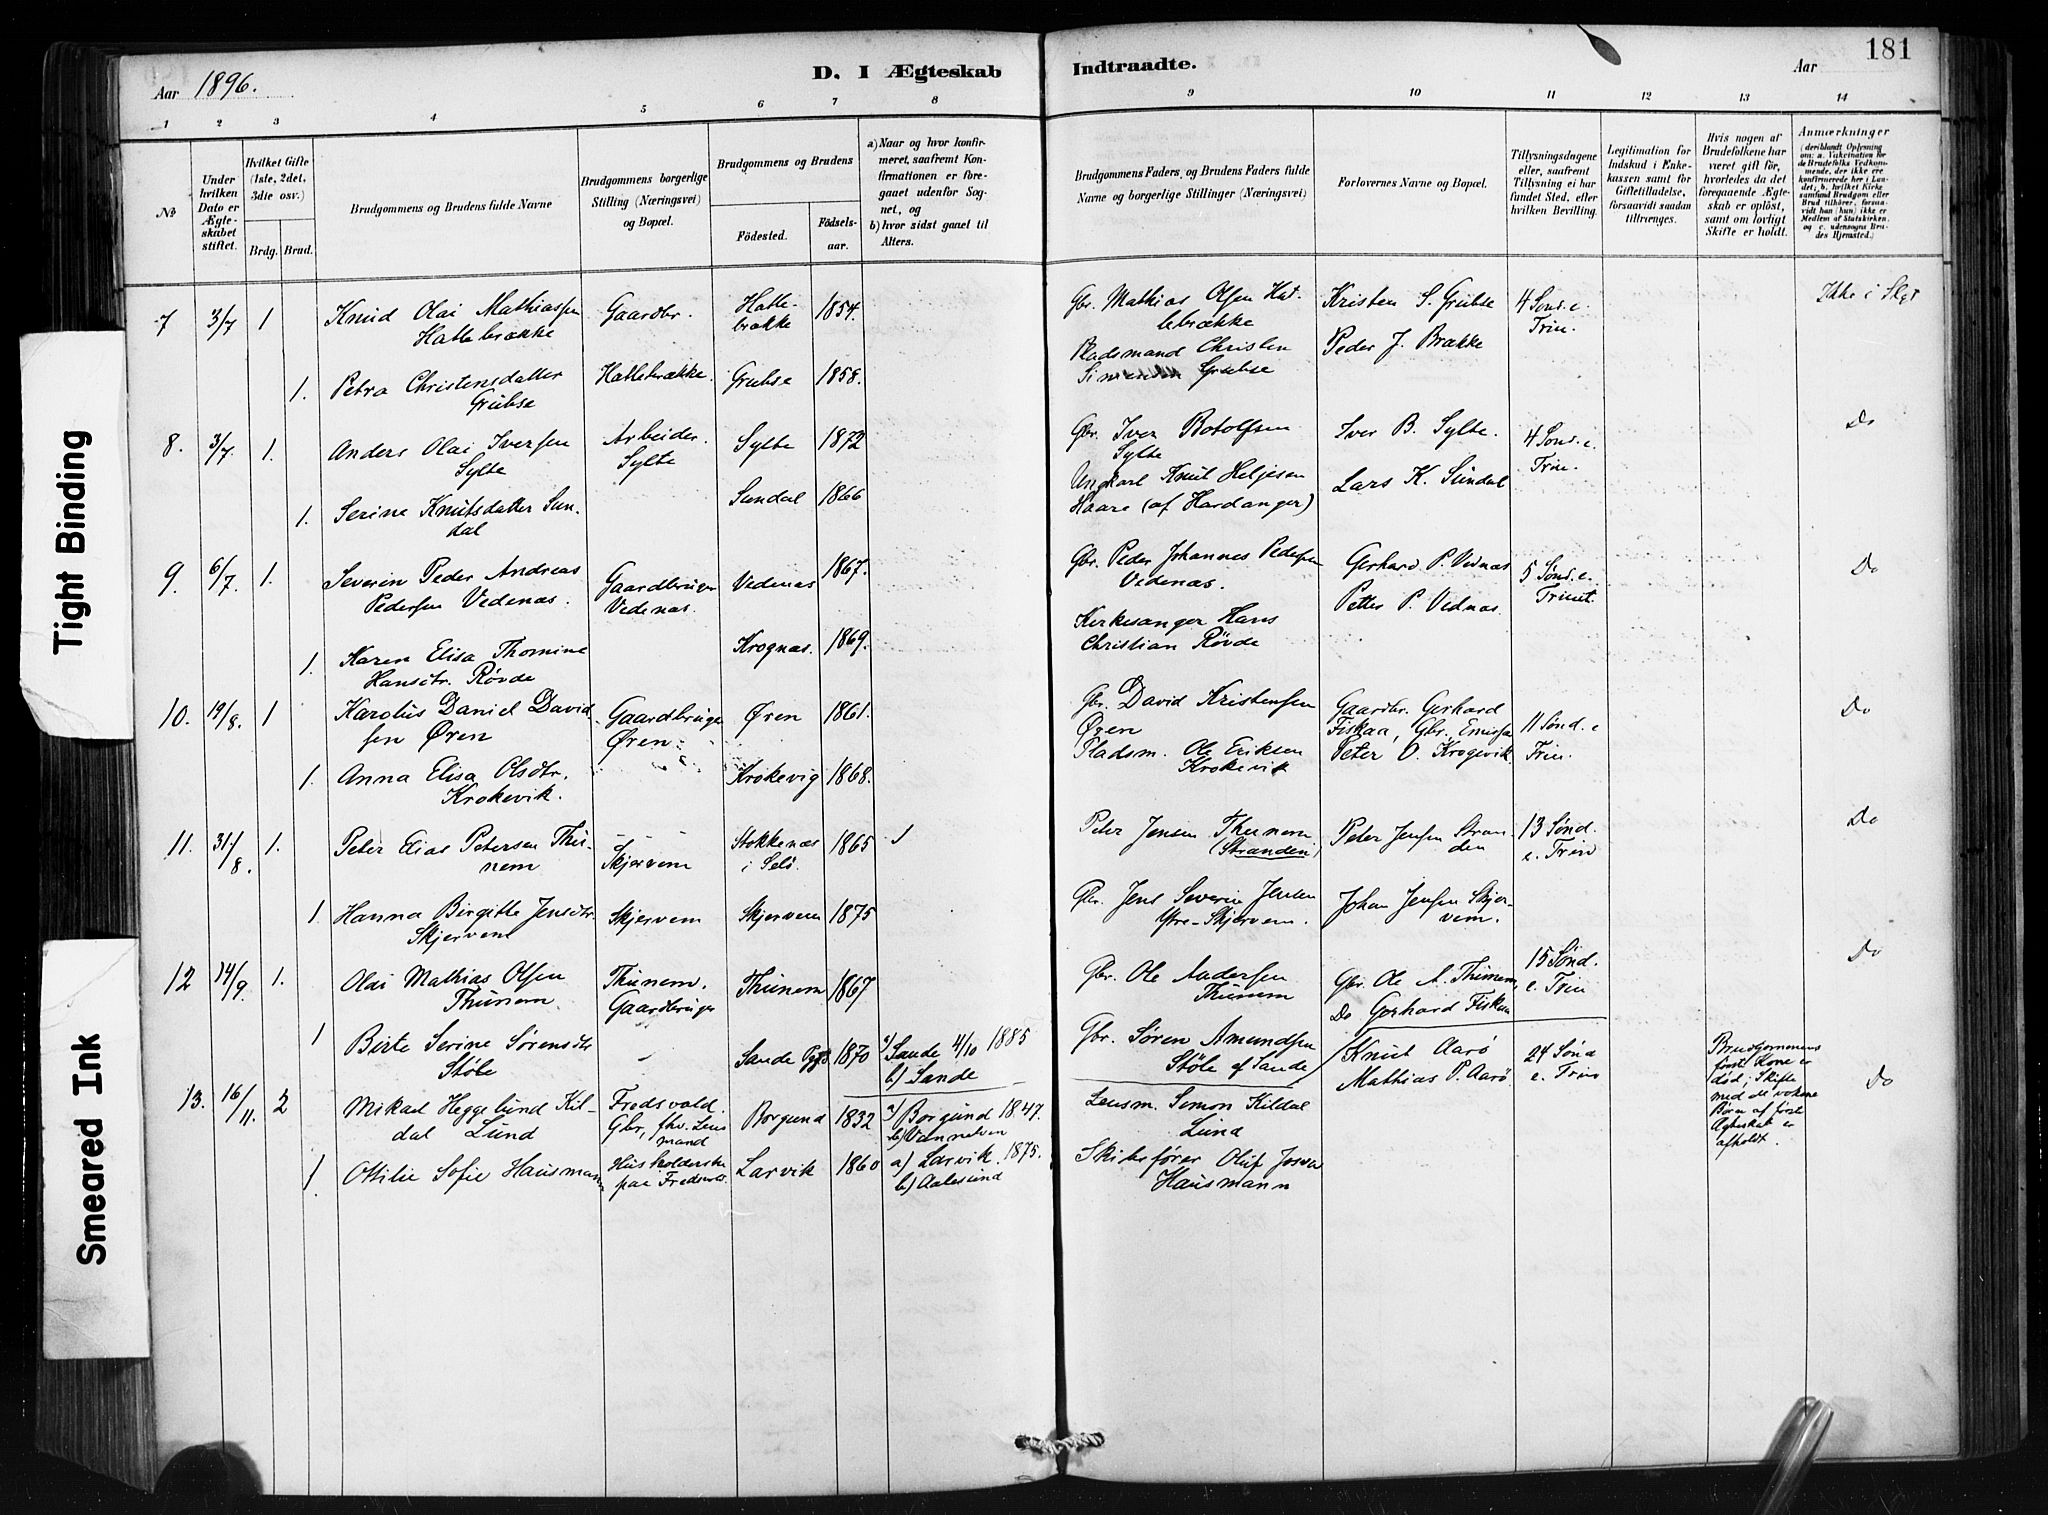 181
Aar 1896.
D. I Ægteskab Indtraadte.
Aar
1 2 3 4 5 6 7 8 9 10 11 12 13 14
No
Under hvilken Dato er Ægteskabet stiftet.
Hvilket Gifte (1ste, 2det, 3die osv.)
Brdg. Brud.
Brudgommens og Brudens fulde Navne
Brudgommens borgerlige Stilling (Næringsvei) og Bopæl.
Brudgommens og Brudens
Födested.
Födselsaar.
a) Naar og hvor konfirmeret, saafremt Konfirmationen er foregaaet udenför Sognet, og
b) hvor sidst gaaet til Alters.
Brudgommens Faders, og Brudens Faders fulde Navne og borgerlige Stillinger (Næringsvei)
Forlovernes Navne og Bopæl.
Tillysningsdagene eller, saafremt Tillysning ei har fundet Sted, efter hvilken Bevilling.
Legitimation for Indskud i Ænkekassen samt for Giftetilladelse, forsaavidt saadan tiltrænges.
Hvis nogen af Brudefolkene har været gift för, hvorledes da det foregaaende Ægteskab er oplöst, samt om lovligt Skifte er holdt.
Anmærkninger (deriblandt Oplysning om: a. Vakcination for de Brudefolks Vedkommende, der ikke ere konfirmerede her i Landet; b. hvilket Kirkesamfund Brudgom eller Brud tilhörer, forsaavidt han (hun) ikke er Medlem af Statskirken, og c. udensogns Brudes Hjemsted.)
7 3/7 1 Knud Olai Mathiassen Hattebrække
Gaardbr. Hattebrække 1854.
Gbr. Mathias Olsen Hatlebrække
Kristen S. Grubse
4 Sønd. e. Trin.
Ikke i Slgt
1. Petra Christensdatter Grubse
Hattebrække. Grubse 1858.
Pladsmand Christen Grubse
Peder J. Brække
8. 3/7. 1. Anders Olai Iversen Sylte
Arbeider. Sylte Sylte 1872
Gbr. Iver Botolfsen Sylte
Iver B. Sylte.
4 Sønd. e. Trin.
Do
1. Serine Knutsdatter Sundal
Sundal 1866
Ungkarl Knut Helgesen Haare (af Hardanger)
Lars K. Sundal
9. 6/7. 1. Severin Peder Andreas Pedersen Vedenas.
Gaardbruger Vedenas. Vedenas 1867.
Gbr. Peder Johannes Pedersen Vedenas.
Gerhard P. Vednas
5 Sønd. e. Trinit.
Do
1. Karen Elisa Thomine Hansdtr. Røvde
Krognas. 1869.
Kirkesanger Hans Christian Røvde
Petter P. Vednas.
10. 19/8. 1 Karolus Daniel Davidsen Øren
Gaardbruger Øren. Øren 1861.
Gbr. David Kristensen Øren
Gaardbr. Gerhard Fiskaa, Gbr.
11 Sønd. e Trin.
Do
1. Anna Elisa Olsdtr. Krokevik.
Krokevig 1868.
Pladsm. Ole Eriksen Krokevik
Peter O. Krogevik
11. 31/8. 1. Peter Elias Petersen Thunem
Skjervem Stokkenæs i Selö. 1865
Peter Jensen Thunem (Stranden)
Peter Jensen Stranden
13 Sønd. e. Trin
Do
1. Hanna Birgitte Jensdtr. Skjervem
Skjervem Skjervem 1875
Gbr. Jens Severin Jensen Ytre-Skjervem.
Johan Jensen Skjervem.
12 14/9. 1. Olai Mathias Olsen Thunem
Thunem. Gaardbruger Thunem 1867
Gbr. Ole Andersen Thunem
Gbr. Ole A. Thunem,
15 Sønd. e. Trin
Do
1 Birte Serine Sørensdtr Støle
Sande Pgd 1870
a) Sande 4/10 1885
b) Sande
Gbr. Søren Amundsen Støle af Sande
Do Gerhard Fiskaa
13. 16/11. 2 Mikael Heggelund Kildal Lund
Fredsvold. Gbr., fhv. Lensmand
Borgund 1832
a) Borgund 1847.
b) Vannelven
Lensm. Simon Kildal Lund
Knut Aarö
Mathias P. Aarö
24 Sønd e. Trin
Brudgommens først Kone er død; Skifte med de voksne Børn af først Ægteskab er afholdt.
Do
1. Ottilie Sofie Hausmann
Husholderske paa Fredsvold. Larvik 1860
a) Larvik. 1875.
b) Aalesund
Skibsfører Oluf Josva Hausmann
Tight Binding
Smeared Ink